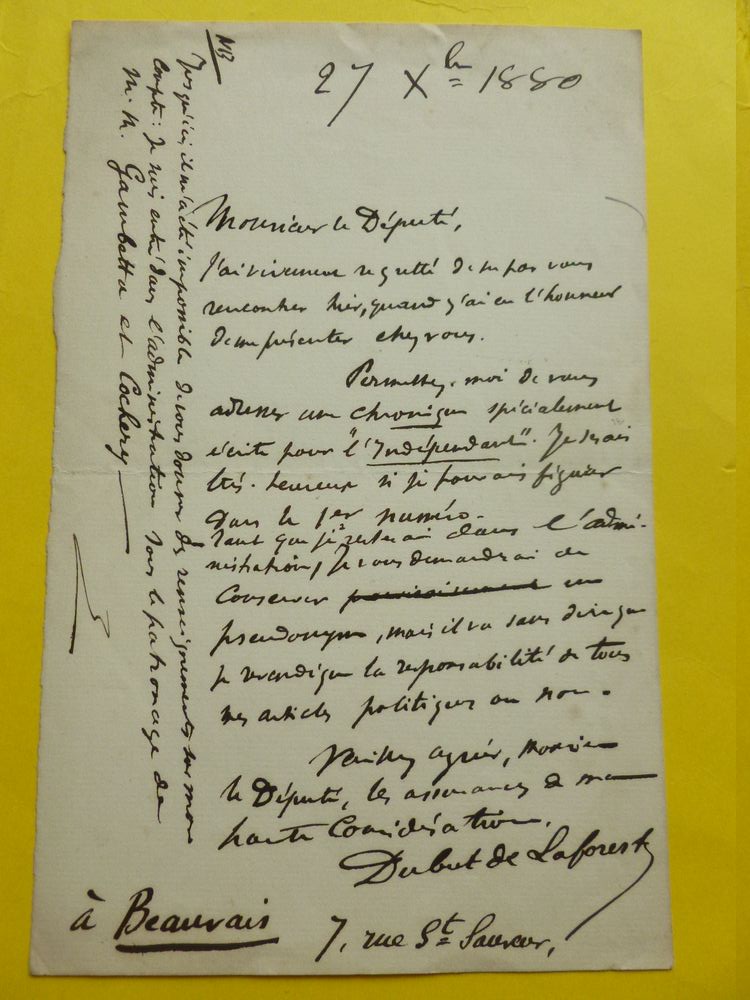 27 Xbre 1880
Monsieur le Député,
J'ai vivement regretté de ne pas vous
rencontrer hier, quand j'ai eu l'honneur
de me présenter chez vous.
Permettez-moi de vous
adresser une chronique spécialement
écrite pour "l'Indépendant". Je serais
très-heureux si je pouvais figurer
dans le 1er numéro.
Tant que je resterai dans l'admi-
nistration, je vous demanderai de
conserver un
pseudonyme, mais il va sans dire que
je revendique la responsabilité de tous
mes articles politiques ou non.
Veuillez agréer, Monsieur
le Député, les assurances de ma
haute considération.
Dubut de Laforest
à Beauvais 7, rue St Sauveur,
NB
Jusqu'ici, il m'a été impossible de vous donner des renseignements sur mon
compte: Je suis entré dans l'administration sous le patronage de
M.M. Gambetta et Cochery